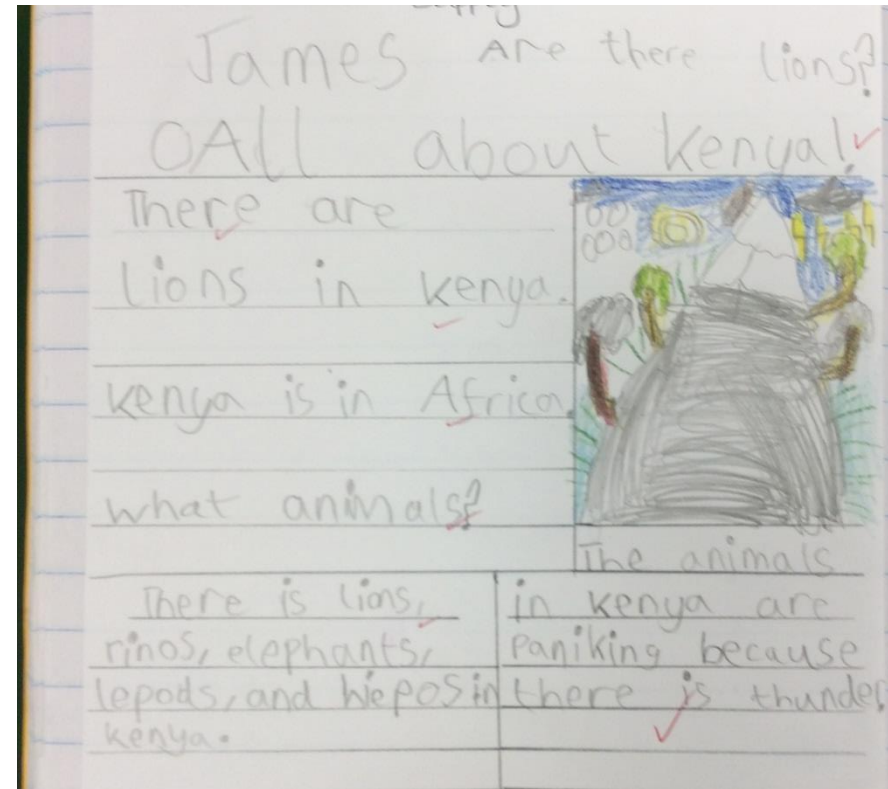 James Are there lions?
OAll about Kenya!
There are
lions in kenya.
kenya is in Africa.
what animals?
There is lions,
rinos, elephants,
lepods, and hiepos in
kenya.
The animals
in kenya are
paniking because
there is thunder.